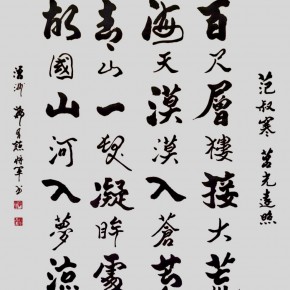 范叔寒 苕光遠照
百尺層樓接大荒
海天漠漠入蒼茫
青山一髮凝眸處
故國山河入夢涼
将軍书